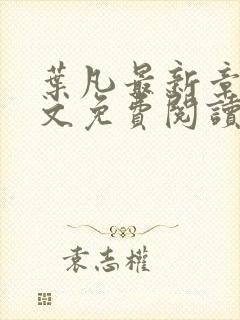 葉凡最新章
文免費閱讀
袁志權